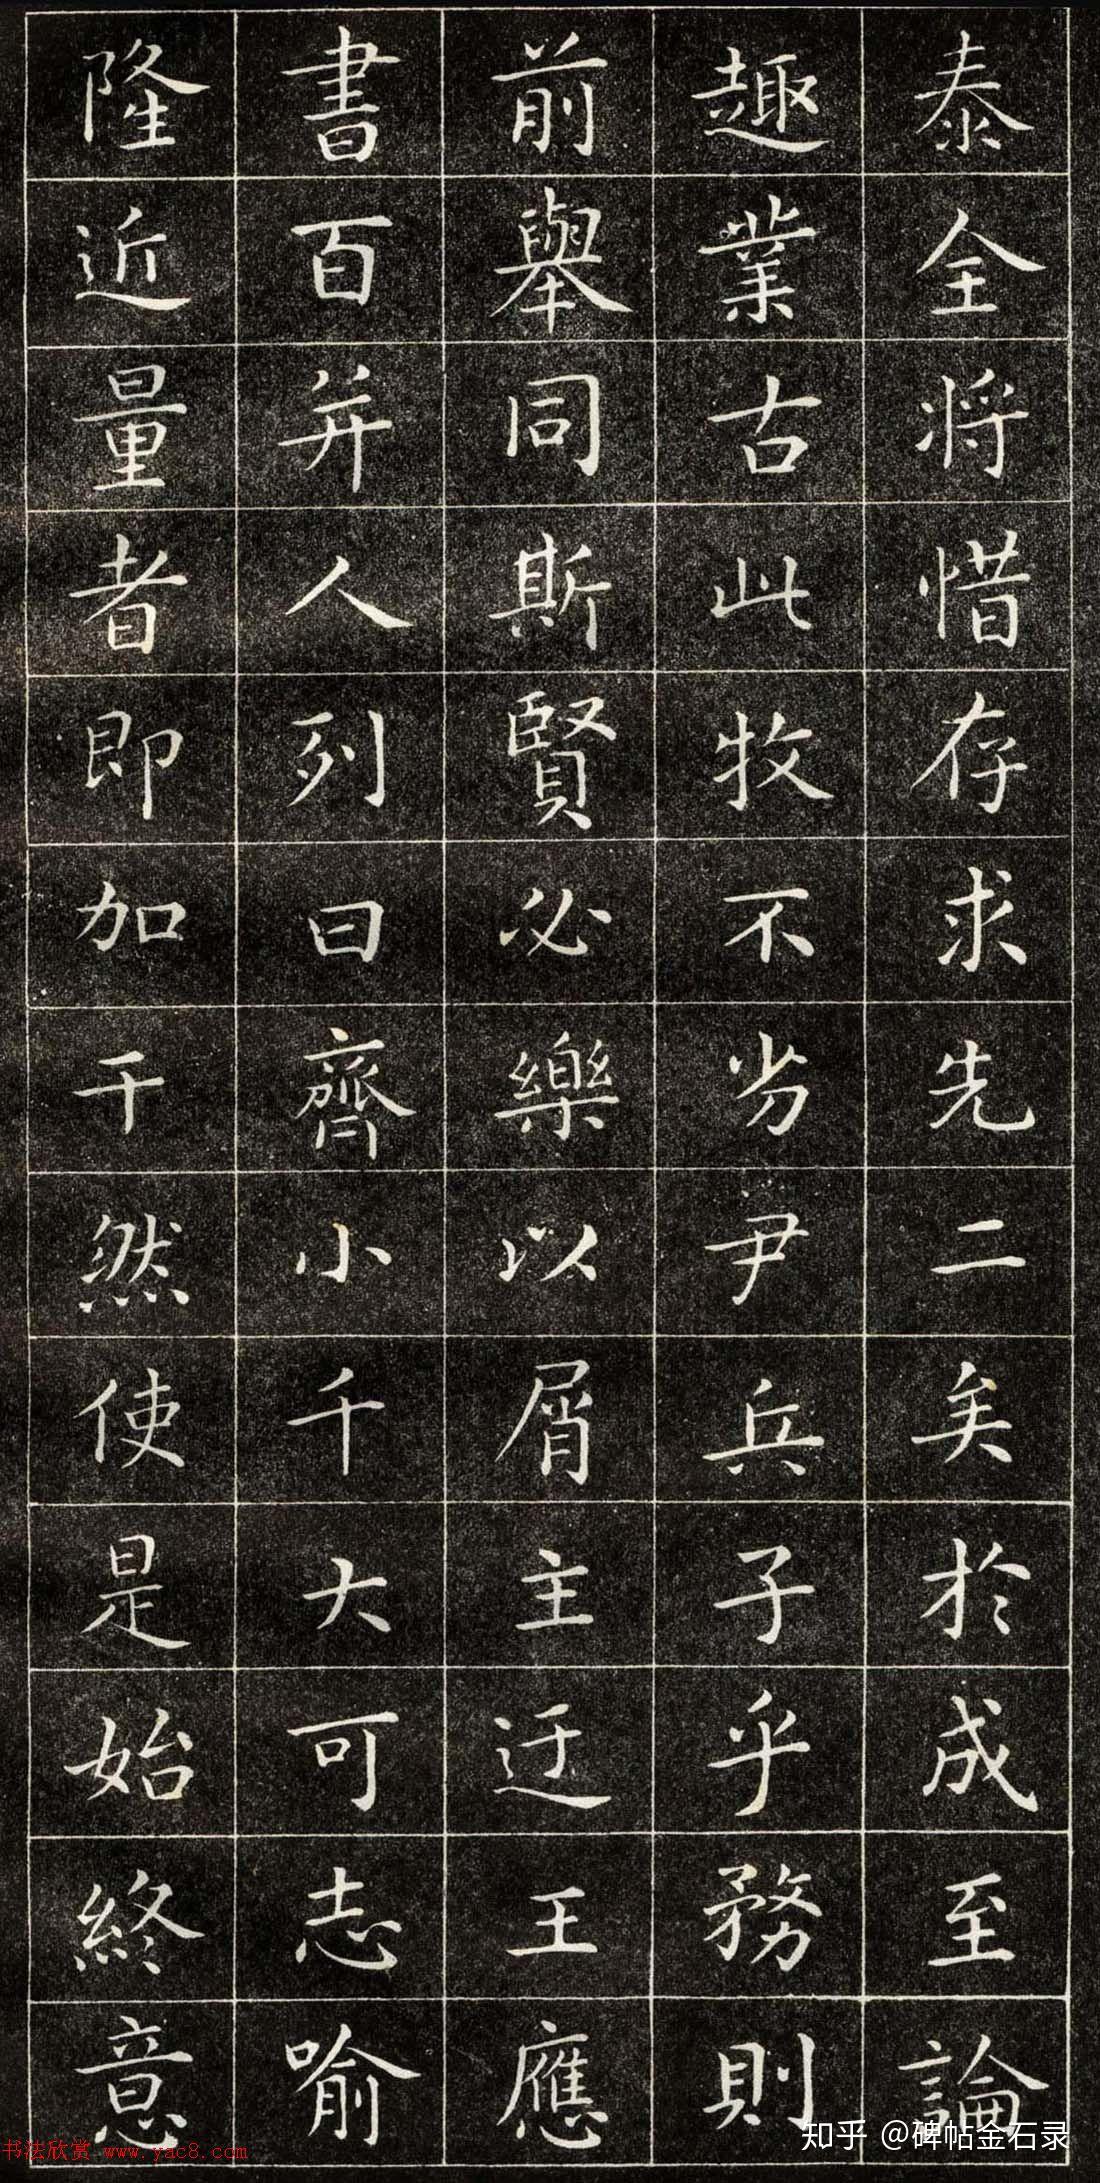 泰全将惜存求先二矣於成至論
趣業古此牧不劣尹兵子乎務則
前舉同斯賢必樂以屑主迂王應
書百并人列曰齊小千大可志喻
隆近量者即加干然使是始終意
知乎 @碑帖金石录
书法欣赏 www.yac8.com